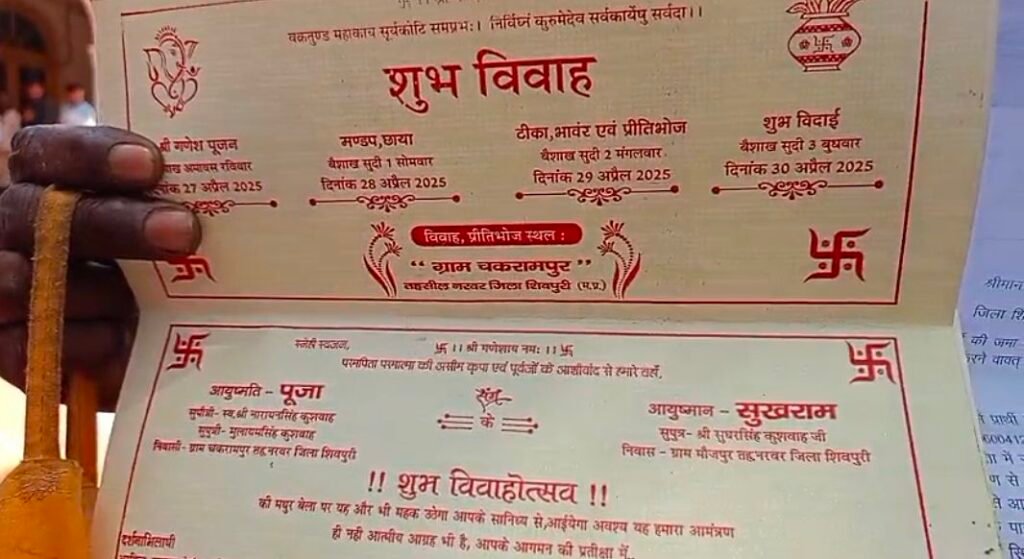 वक्रतुण्ड महाकाय सूर्यकोटि समप्रभः। निर्विघ्नं कुरुमेदेव सर्वकार्येषु सर्वदा।।
शुभ विवाह
श्री गणेश पूजन
अमावस रविवार
27 अप्रैल 2025
मण्डप,छाया
बैशाख सुदी 1 सोमवार
दिनांक 28 अप्रैल 2025
टीका,भावंर एवं प्रीतिभोज
बैशाख सुदी 2 मंगलवार
दिनांक 29 अप्रैल 2025
शुभ विदाई
बैशाख सुदी 3 बुधवार
दिनांक 30 अप्रैल 2025
विवाह, प्रीतिभोज स्थल :
“ ग्राम चकरामपुर ”
तहसील नरवर जिला शिवपुरी (म.प्र.)
स्नेही स्वजन,
।। श्री गणेशाय नमः ।।
परमपिता परमात्मा की असीम कृपा एवं पूर्वजों के आशीर्वाद से हमारे यहाँ,
आयुष्मति - पूजा
सुपौत्री- स्व.श्री नारायनसिंह कुशवाह
सुपुत्री- मुलायमसिंह कुशवाह
निवासी- ग्राम चकरामपुर तह.नरवर जिला शिवपुरी
संग
के
आयुष्मान - सुखराम
सुपुत्र- श्री सुघरसिंह कुशवाह जी
निवास - ग्राम मौजपुर तह.नरवर जिला शिवपुरी
!! शुभ विवाहोत्सव !!
की मधुर बेला पर यह और भी महक उठेगा आपके सानिध्य से,आईयेगा अवश्य यह हमारा आमंत्रण
ही नही आत्मीय आग्रह भी है, आपके आगमन की प्रतीक्षा में..
दर्शनाभिलाषी
श्रीमान
जिला शि
की जमा